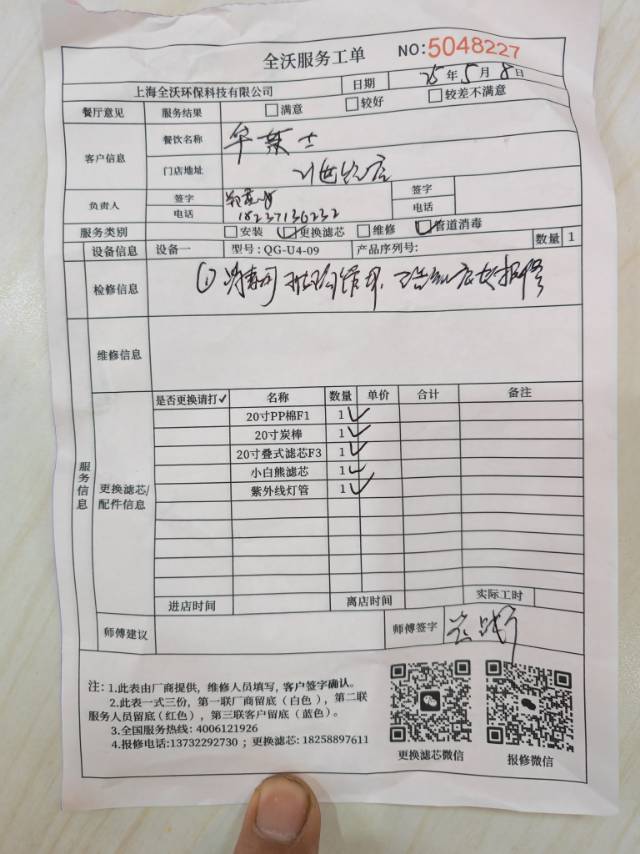 全沃服务工单 NO:5048227
上海全沃环保科技有限公司 日期 25年5月8日
餐厅意见 服务结果 满意 较好 较差不满意
客户信息 餐饮名称 华莱士
门店地址
负责人 签字 签字
电话 18237136232 电话
服务类别 安装 更换滤芯 维修 管道消毒
设备信息 设备一 型号:QG-U4-09 产品序列号: 数量 1
检修信息 ①
维修信息
服务信息
更换滤芯/配件信息
是否更换请打✓ 名称 数量 单价 合计 备注
20寸PP棉F1 1 ✓
20寸炭棒 1 ✓
20寸叠式滤芯F3 1 ✓
小白熊滤芯 1 ✓
紫外线灯管 1 ✓
进店时间 离店时间 实际工时
师傅建议 师傅签字
注:1.此表由厂商提供,维修人员填写,客户签字确认。
2.此表一式三份,第一联厂商留底(白色),第二联
服务人员留底(红色),第三联客户留底(蓝色)。
3.全国服务热线:4006121926
4.报修电话:13732292730;更换滤芯:18258897611
更换滤芯微信 报修微信